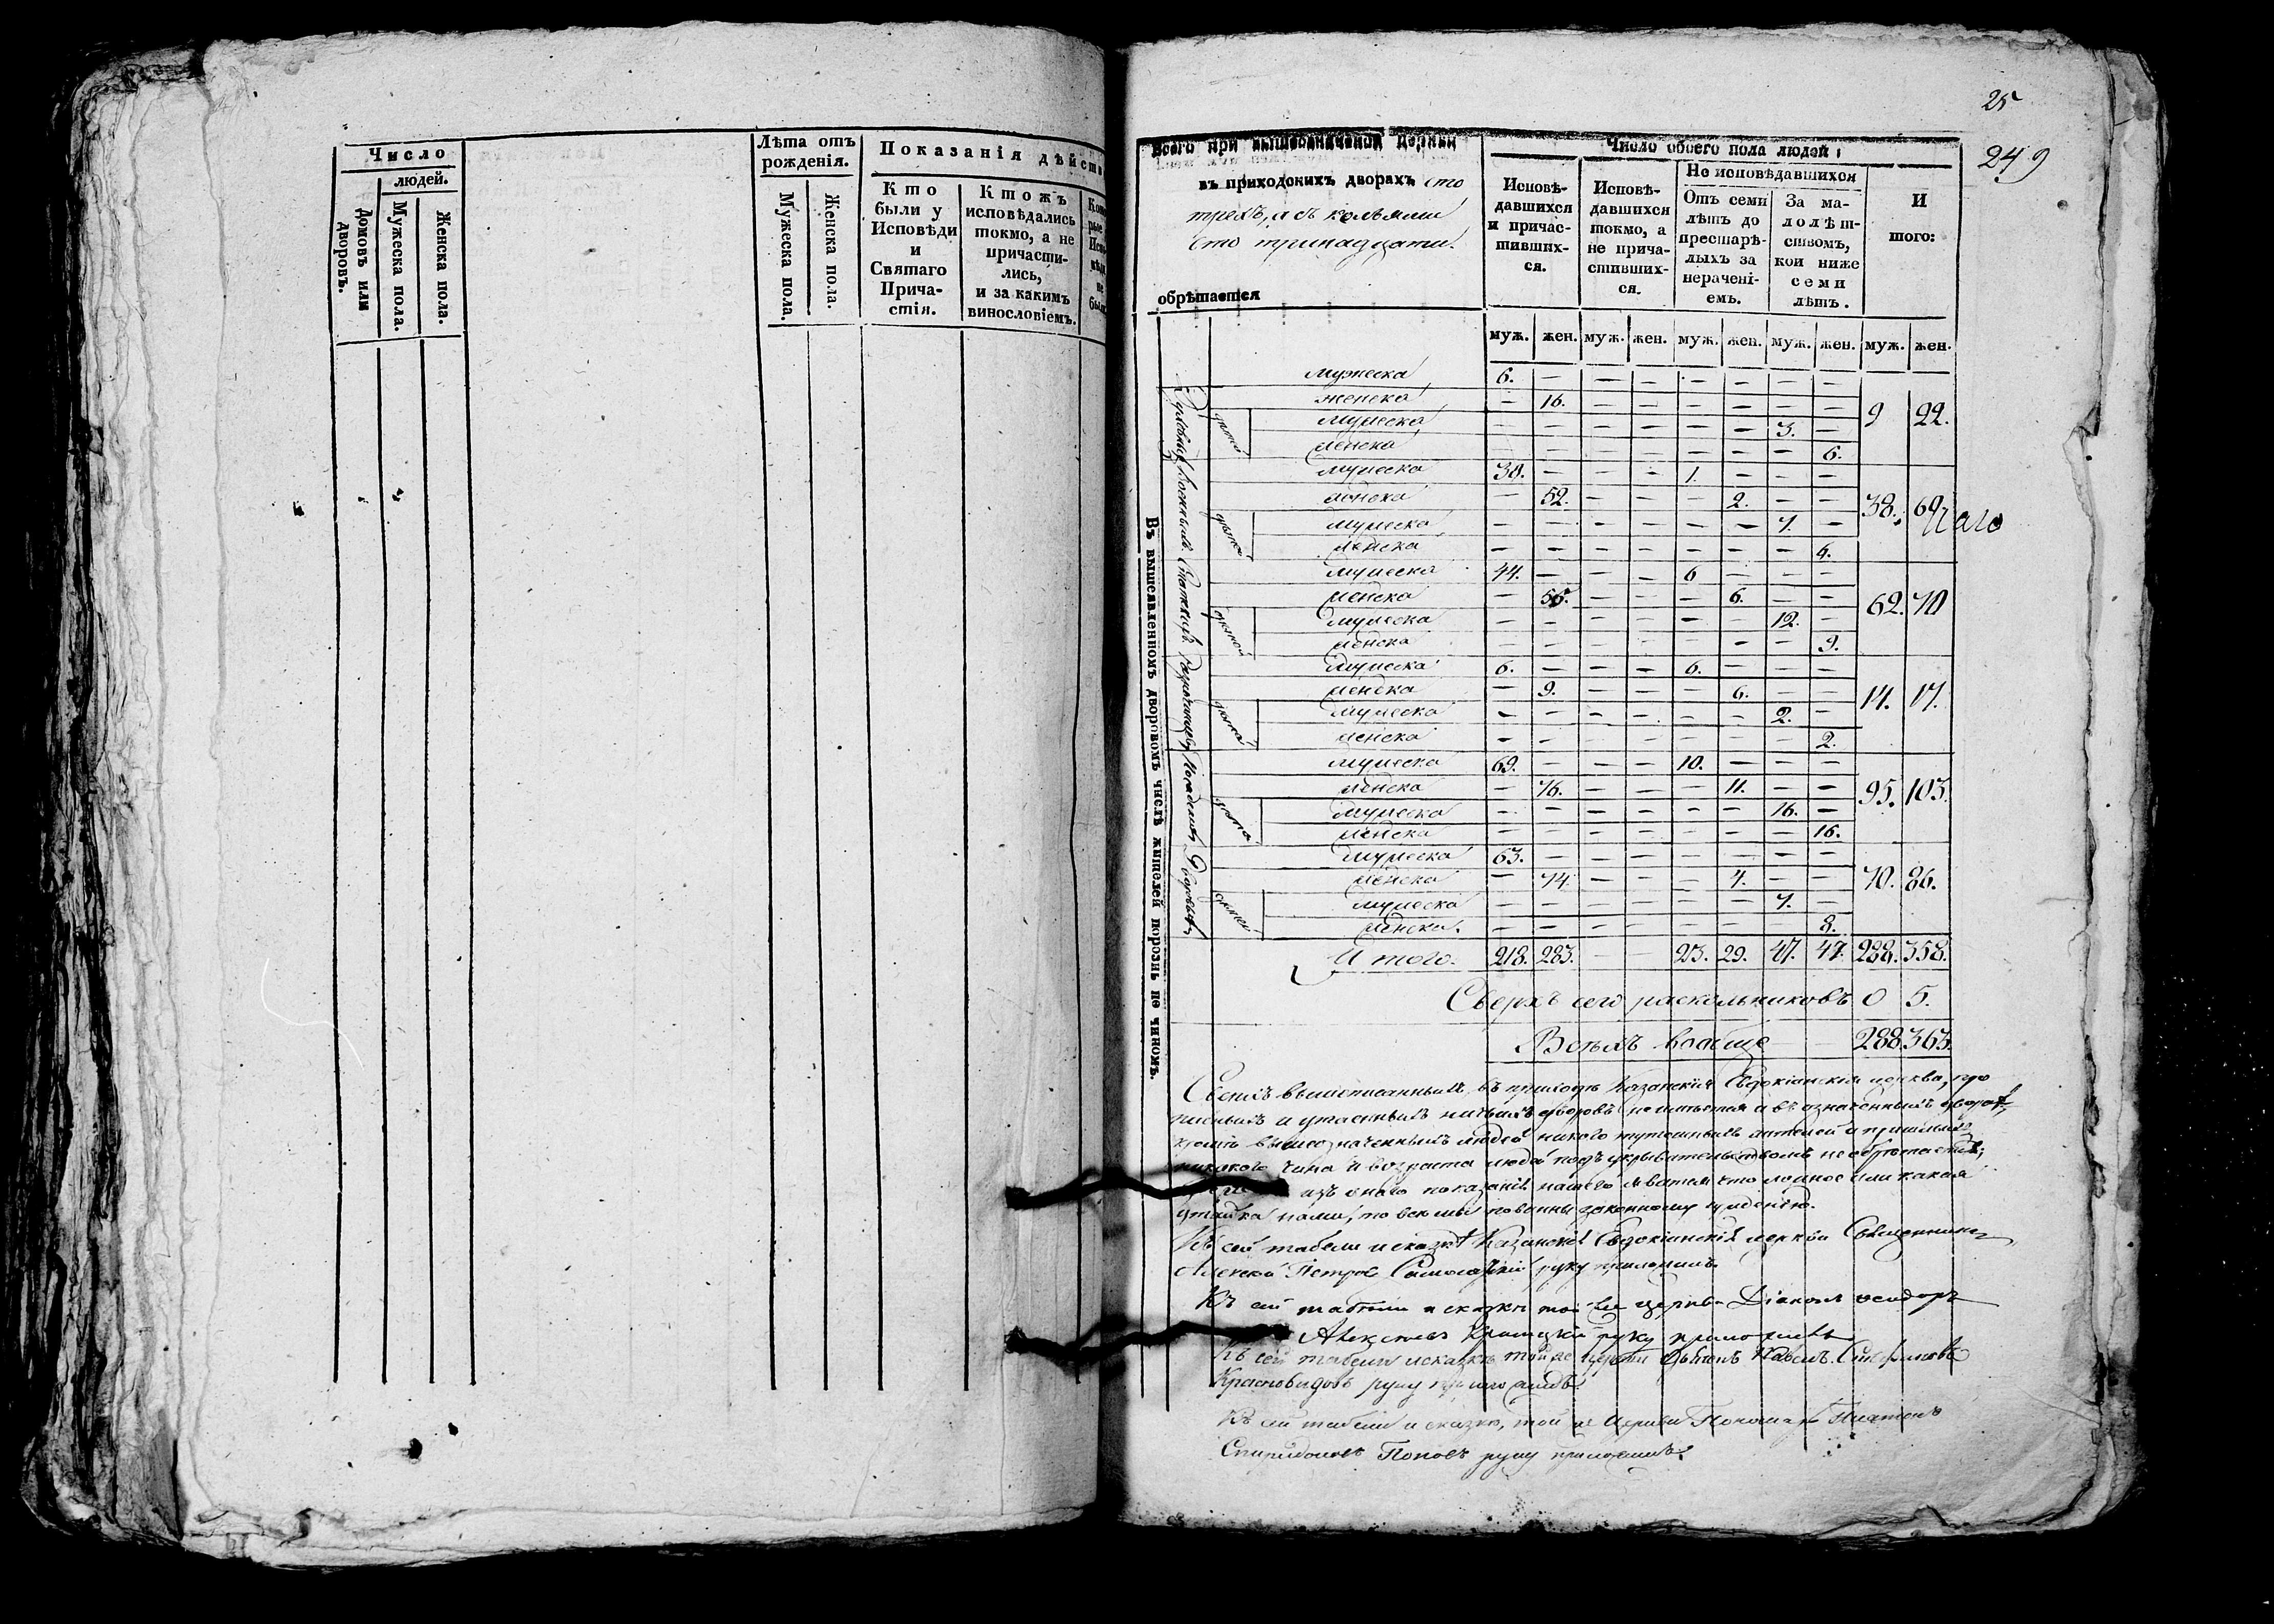 Число
людей.
Домовъ или дворовъ.
Мужеска пола.
Женска пола.
Лѣта отъ рожденія.
Мужеска пола.
Женска пола.
Показанія дѣйств
Кто были у Исповѣди и Святаго Причастія.
Ктожъ исповѣдались токмо, а не причастились, и за какимъ винословіемъ.
25
249
Всего при вышеозначеной Церкви
въ приходскихъ дворахъ сто
трехъ, а съ кельями
сто тринадцати.
обрѣтается
Число обоего пола людей:
Исповѣдавшихся и причастившихся.
Исповѣдавшихся токмо, а не причастившихся.
Не исповѣдавшихся
Отъ семи лѣтъ до престарѣлыхъ за нераченіемъ.
За малолѣтствомъ, кои ниже семи лѣтъ.
Итого:
муж. жен. муж. жен. муж. жен. муж. жен. муж. жен.
Въ вышеявленномъ дворовомъ числѣ жителей порознь по чиномъ.
Духовныхъ Военныхъ Статскихъ Разночинцовъ Посадскихъ Дворовыхъ
мужеска 6. — — — — — — —
женска — 16. — — — — — — 9 22.
дѣтей мужеска — — — — — — 3. —
женска — — — — — — — 6.
мужеска 30. — — — 1. — — —
женска — 52. — — — 2. — — 38. 60.
дѣтей мужеска — — — — — — 7. —
женска — — — — — — — 6.
мужеска 44. — — — 6 — — —
женска — 55. — — — 6. — — 62. 70
дѣтей мужеска — — — — — — 12. —
женска — — — — — — — 9.
мужеска 6. — — — 6. — — —
женска — 9. — — — 6. — — 14. 17.
дѣтей мужеска — — — — — — 2. —
женска — — — — — — — 2.
мужеска 69. — — — 10. — — —
женска — 76. — — — 11. — — 95. 103.
дѣтей мужеска — — — — — — 16. —
женска — — — — — — — 16.
мужеска 63. — — — — — — —
женска — 74. — — — 4. — — 70. 86.
дѣтей мужеска — — — — — — 7. —
женска. — — — — — — — 8.
Итого. 218. 283. — — 23. 29. 47. 47. 288. 358.
Сверхъ сего раскольниковъ 0 5.
Всѣхъ вообще 288. 363.
Свѣхъ вышеписанныхъ въ приходѣ Казанскія Евдокіанскія церкви, про
писныхъ и утаенныхъ ничьихъ дворовъ не имѣется и въ означенныхъ дворахъ
кромѣ вышеозначенныхъ людей никого жителей и пришлыхъ
никакого чина и возраста людей подъ укрывательствомъ не обрѣтается;
изъ онаго показанія нашего что ложное или какая
утайка нами, то всѣ мы повинны законному сужденію.
Къ сей табели и сказкѣ Казанскія Евдокіанскія церкви Священникъ
Алексѣй Петровъ руку приложилъ.
Къ сей табели и сказкѣ той же церкви Діаконъ
Алексѣевъ руку приложилъ
Къ сей табели и сказкѣ той же церкви Дьячекъ Павелъ
Краснобидовъ руку приложилъ.
Къ сей табели и сказкѣ, той же Церкви Пономарь Платонъ
Спиридоновъ Поповъ руку приложилъ.